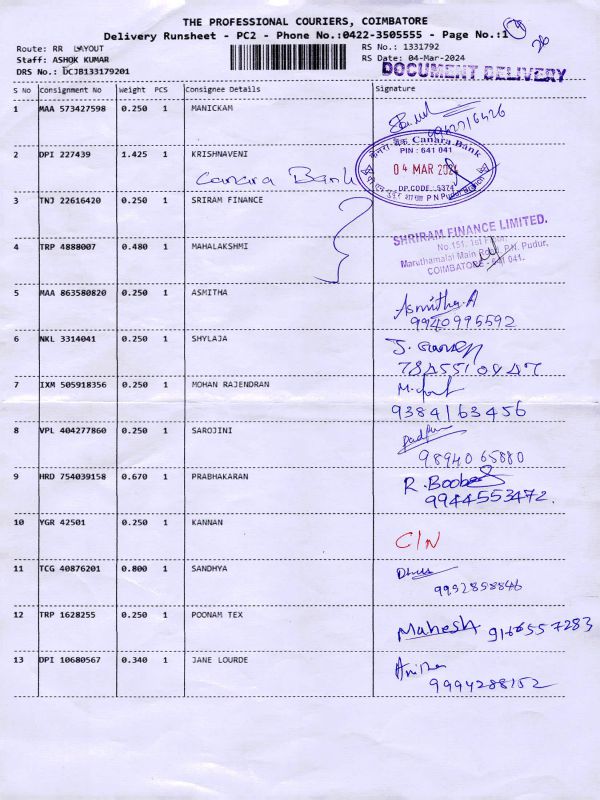 THE PROFESSIONAL COURIERS, COIMBATORE
Delivery Runsheet - PC2 - Phone No.:0422-3505555 - Page No.:1
Route: RR LAYOUT
RS No.: 1331792
Staff: ASHOK KUMAR
RS Date: 04-Mar-2024
DRS No.: DCJB133179201
DOCUMENT DELIVERY
S No Consignment No Weight PCS Consignee Details Signature
1 MAA 573427598 0.250 1 MANICKAM
2 DPI 227439 1.425 1 KRISHNAVENI
Canara Bank
Canara Bank
PIN : 641 041
04 MAR 2024
DP.CODE : 5374
3 TNJ 22616420 0.250 1 SRIRAM FINANCE
SHRIRAM FINANCE LIMITED.
No.151, 1st
Maruthamalai Main Road, P.N. Pudur,
COIMBATORE - 641 041.
4 TRP 4888007 0.480 1 MAHALAKSHMI
5 MAA 863580820 0.250 1 ASMITHA Asmitha.A
9940995592
6 NKL 3314041 0.250 1 SHYLAJA
7 IXM 505918356 0.250 1 MOHAN RAJENDRAN
9384163456
8 VPL 404277860 0.250 1 SAROJINI
9894065880
9 HRD 754039158 0.670 1 PRABHAKARAN R. Boobes
9944553472.
10 YGR 42501 0.250 1 KANNAN C/N
11 TCG 40876201 0.800 1 SANDHYA
12 TRP 1628255 0.250 1 POONAM TEX Mahesh 9166557283
13 DPI 10680567 0.340 1 JANE LOURDE Anitha
9994288152